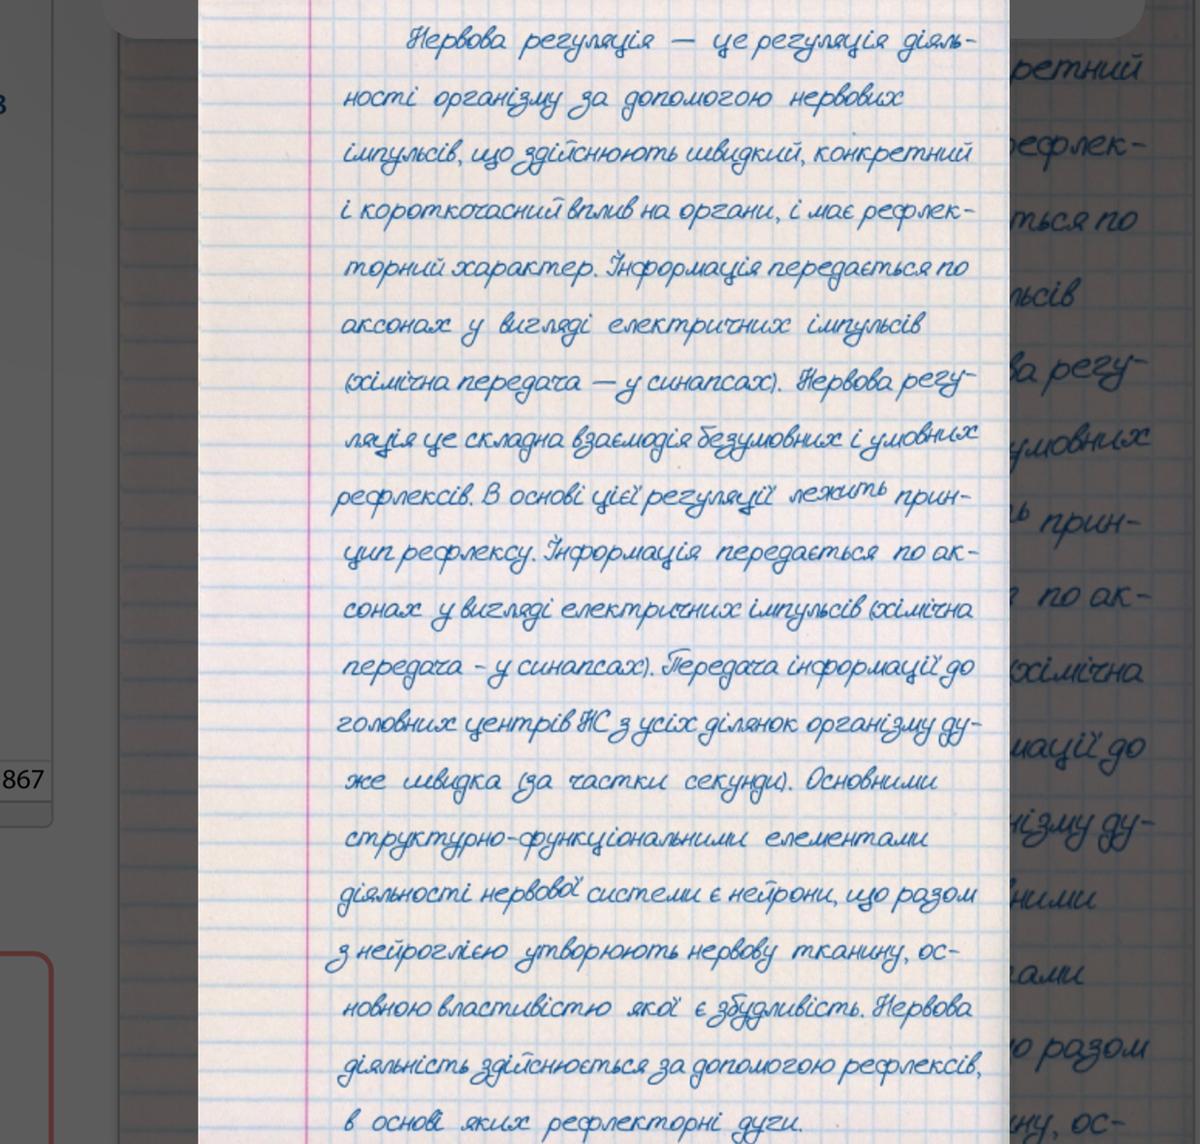 Нервова регуляція — це регуляція діяль-
ності організму за допомогою нервових
імпульсів, що здійснюють швидкий, конкретний
і короткочасний вплив на органи, і має рефлек-
торний характер. Інформація передається по
аксонах у вигляді електричних імпульсів
(хімічна передача — у синапсах). Нервова регу-
ляція це складна взаємодія безумовних і умовних
рефлексів. В основі цієї регуляції лежить прин-
цип рефлексу. Інформація передається по ак-
сонах у вигляді електричних імпульсів (хімічна
передача - у синапсах). Передача інформації до
головних центрів НС з усіх ділянок організму ду-
же швидка (за частки секунди). Основними
структурно-функціональними елементами
діяльності нервової системи є нейрони, що разом
з нейроглією утворюють нервову тканину, ос-
новною властивістю якої є збудливість. Нервова
діяльність здійснюється за допомогою рефлексів,
в основі яких рефлекторні дуги.
в
867
ретний
рефлек-
ться по
льсів
ва регу-
умовних
ь прин-
по ак-
хімічна
мації до
нізму ду-
ними
ами
о разом
ну, ос-